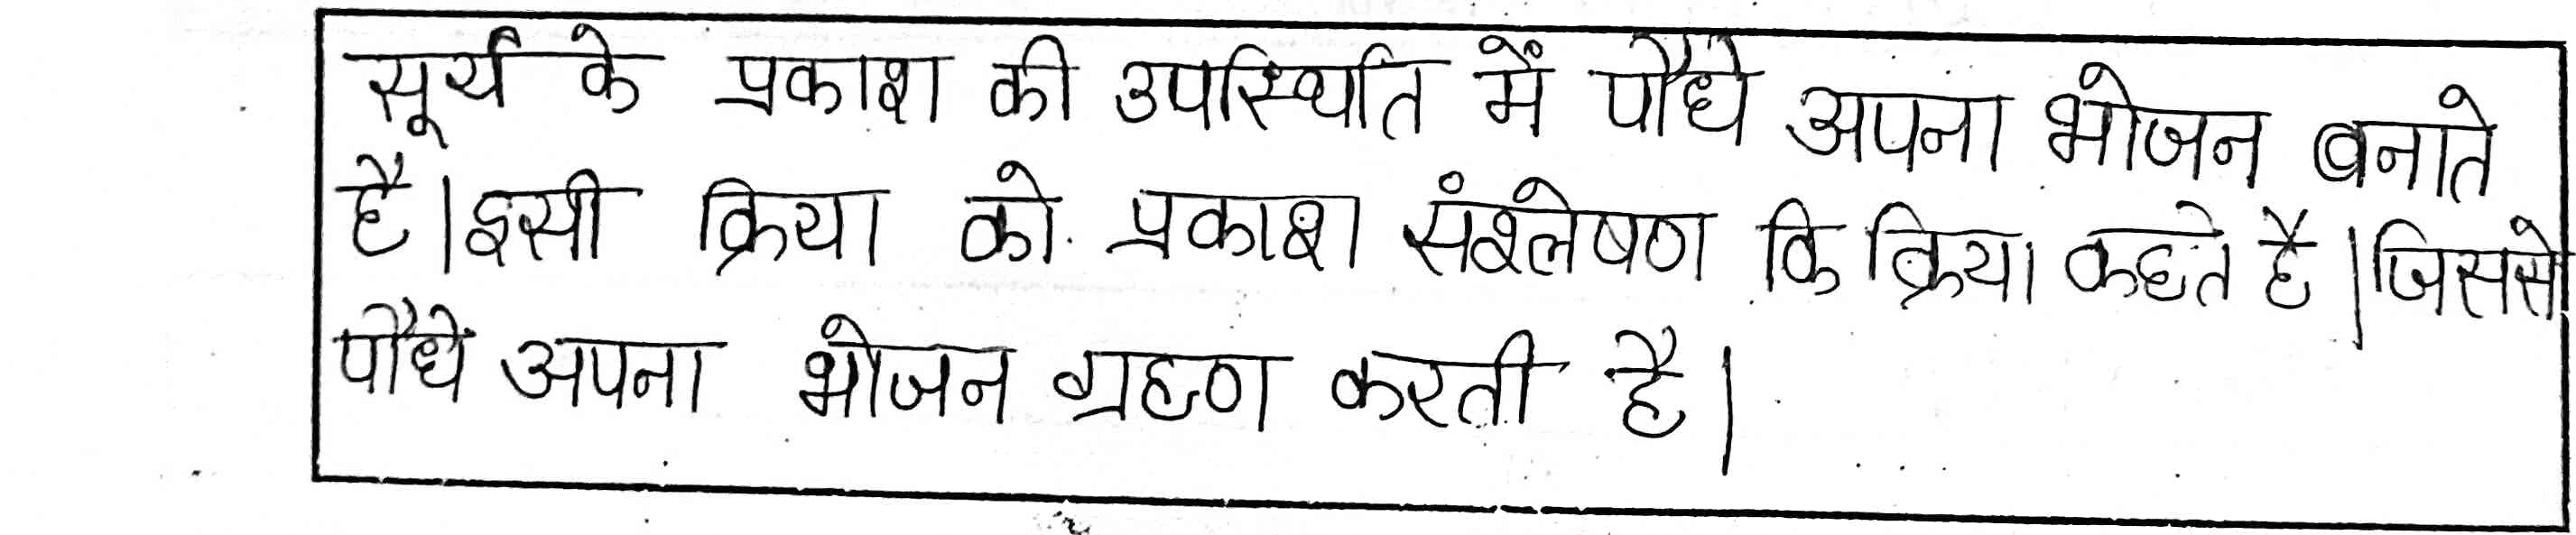 सूर्य के प्रकाश की उपस्थिति में पौधे अपना भोजन बनाते
है। इसी क्रिया को प्रकाश संश्लेषण कि क्रिया कहते है। जिससे
पौधे अपना भोजन ग्रहण करती है।